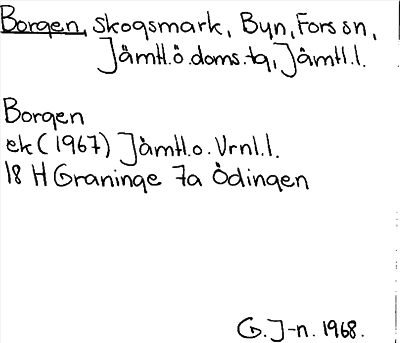 Borgen, skogsmark, Byn, Fors sn,
Jämtl.ö.doms.tg, Jämtl.l.
Borgen
ek (1967) Jämtl.o.Vrnl.l.
18 H Graninge 7a Ödingen
G.J-n. 1968.